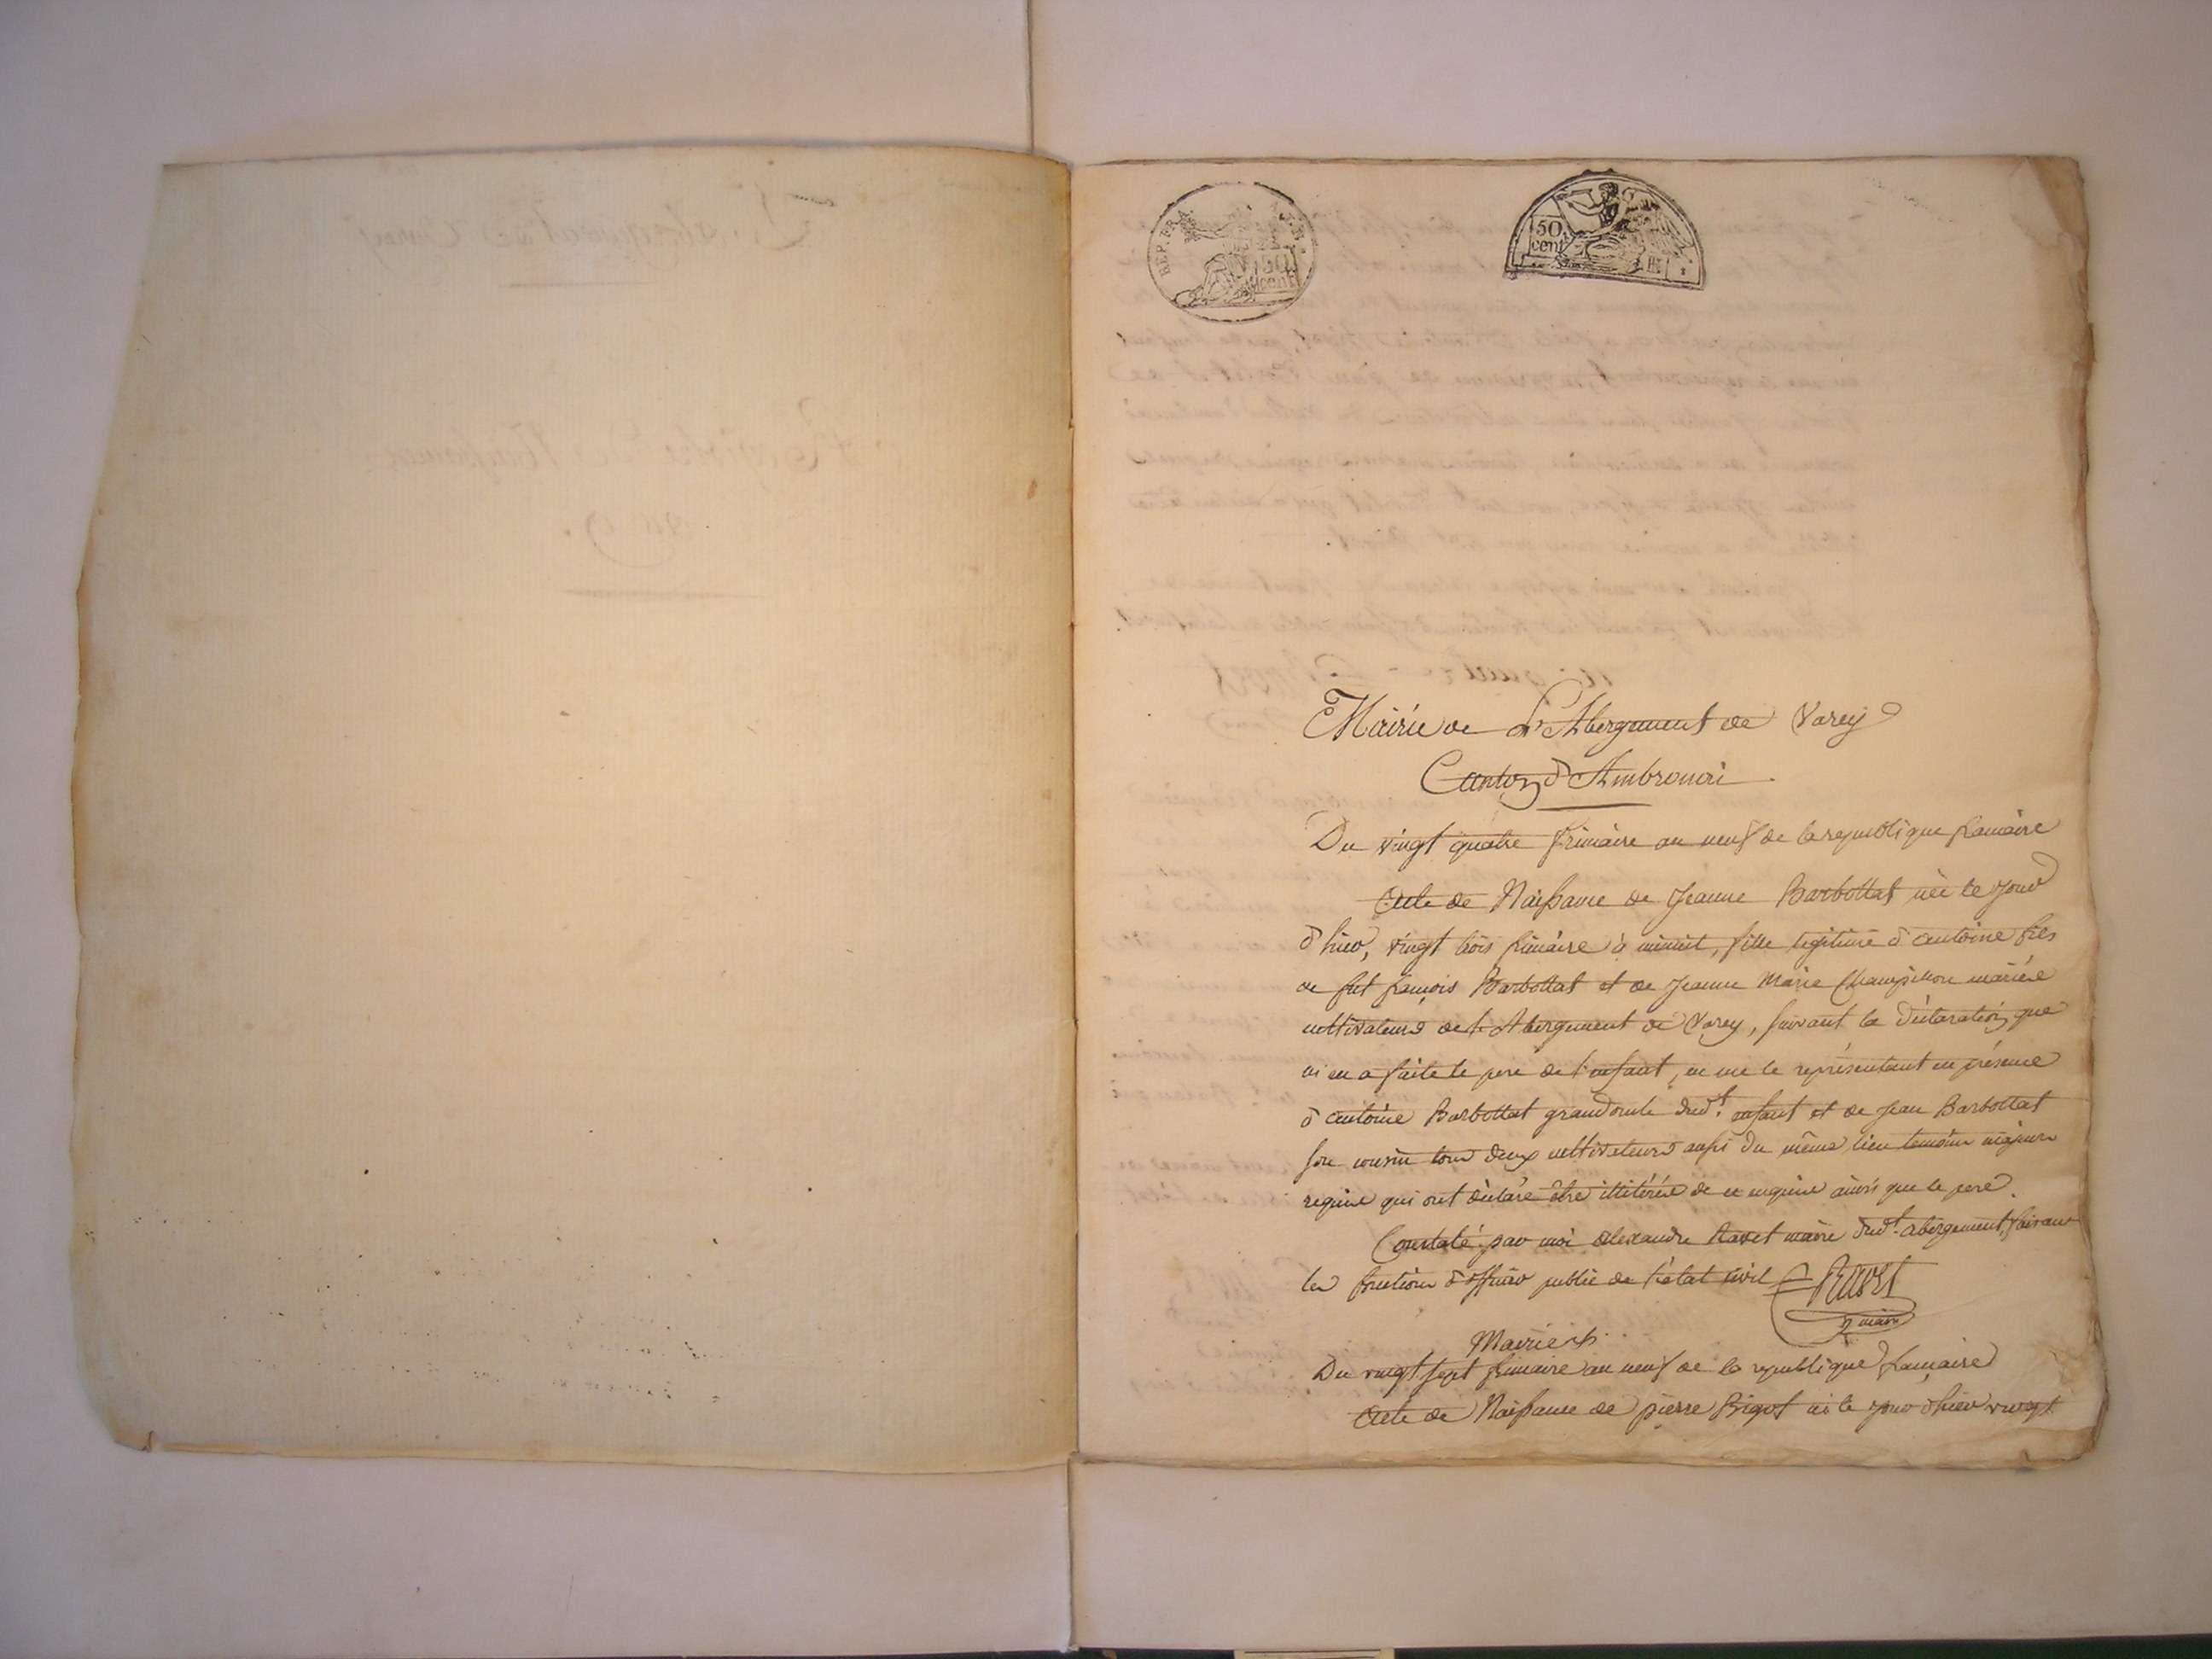 RÉP. FRA.
50
cent
50
cent
Mairie de L'Abergement de Varey
Canton d'Ambronai
Du vingt quatre frimaire an neuf de la republique francaire
Acte de Naissance de Jeanne Barbottat née le jour
d'hier, vingt trois frimaire à minuit, fille legitime d'antoine fils
de fut françois Barbottat et de Jeanne Marie Champillon mariés
cultivateurs de L'Abergement de Varey, suivant la déclaration que
m'en a faite le pere de l'enfant, en me le représentant en présence
d'antoine Barbottat grand oncle dudt. enfant et de jean Barbottat
son cousin tous deux cultivateurs aussi du même lieu temoins majeurs
requis qui ont déclaré être illitérés de ce enquis ainsi que le pere.
Constaté par moi alexandre Ravet maire dudt. abergement, faisant
les fonctions d'officier public de l'état civil Ravet
maire
Mairie
Du vingt sept frimaire an neuf de la republique francaise
Acte de Naissance de pierre Bigot né le jour d'hier vingt